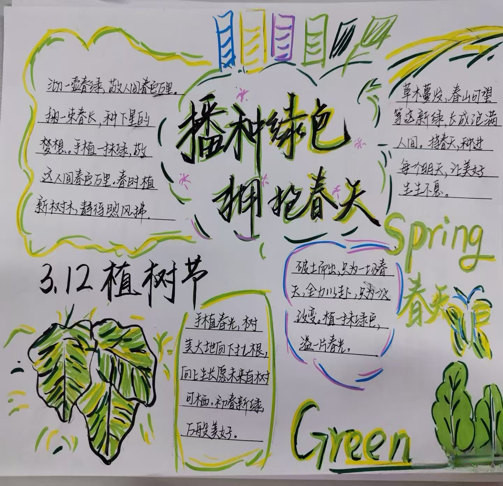 播种绿色
拥抱春天
沏一壶春绿,敬人间春山万里。
掬一束春长,种下里的
梦想。手植一抹绿,敬
这人间春山万里。春时植
新树木,静待晓风拂
草木蔓发,春山可望
等这新绿长成浪漫
人间,拥春天,种进
每个细天,让美好
生生不息。
Spring
春天
3.12植树节
手植春光,树
美大地向下扎根,
向上生长愿未来自树
可栖,初春新绿
万般美好。
破土而出,只为一场春
天,全力以赴,只为一次
改变。植一抹绿色,
溢一片春光。
Green